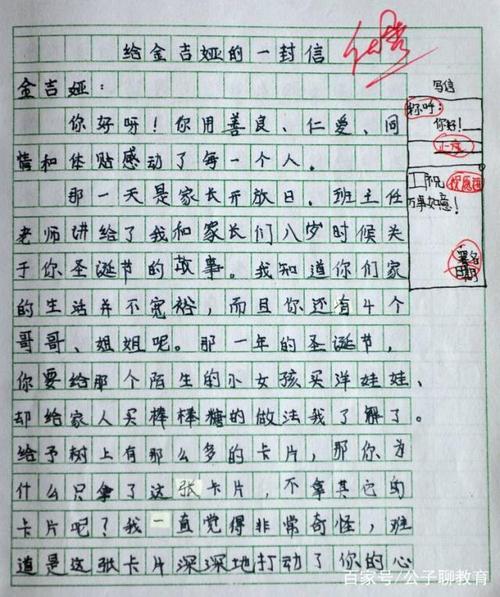 给金吉娅的一封信
金吉娅：
你好呀！你用善良、仁爱、同
情和体贴感动了每一个人。
那一天是家长开放日。班主任
老师讲给了我和家长们八岁时候关
于你圣诞节的故事。我知道你们家
的生活并不宽裕，而且你还有4个
哥哥、姐姐呢。那一年的圣诞节，
你要给那个陌生的小女孩买洋娃娃、
却给家人买棒棒糖的做法我了解了。
给予树上有那么多的卡片，那你为
什么只拿了这张卡片，不拿其它的
卡片呢？我一直觉得非常奇怪，难
道是这张卡片深深地打动了你的心
写信
称呼：
你好！
正文
祝愿语
万事如意！
署名
日期
百家号/公子聊教育